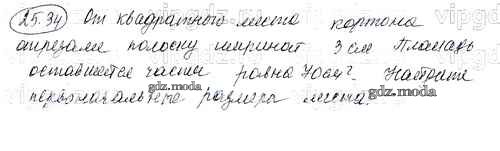 25.34 От квадратного листа картона
отрезали полоску шириной 3 см Площадь
оставшейся части равна 70см². Найдите
gdz.moda
первоначальные размеры листа.
gdz.moda